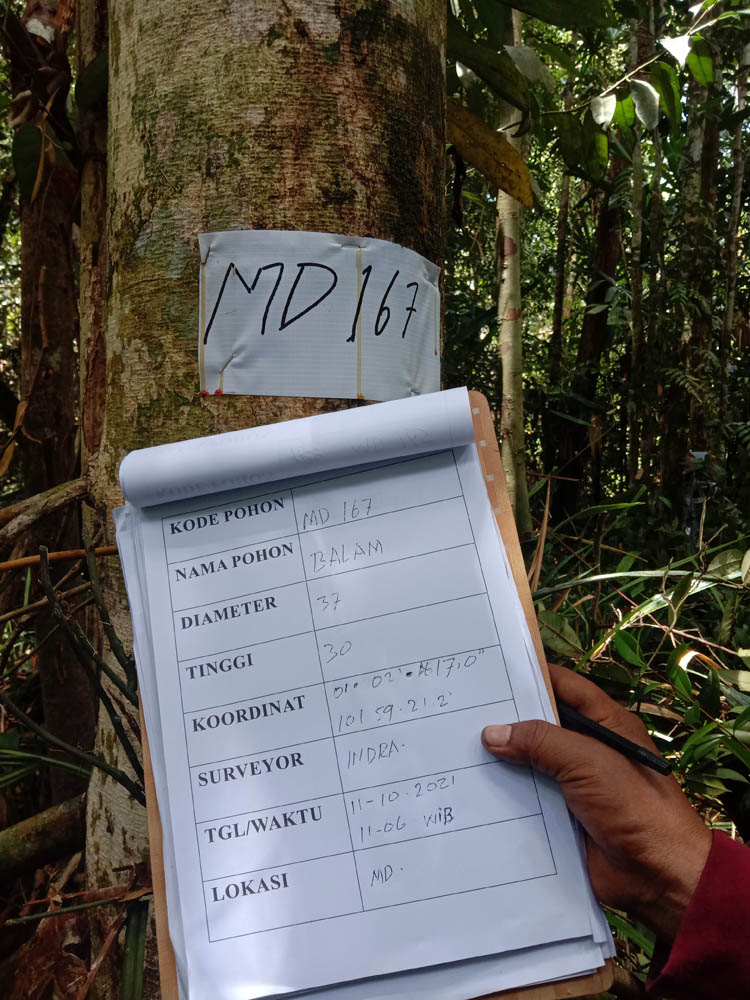 MD 167
KODE POHON MD 167
NAMA POHON BALAM
DIAMETER 37
TINGGI 30
KOORDINAT 01° 02'
101 59. 21. 2'
SURVEYOR INDRA.
TGL/WAKTU 11-10-2021
11-06 WIB
LOKASI MD.